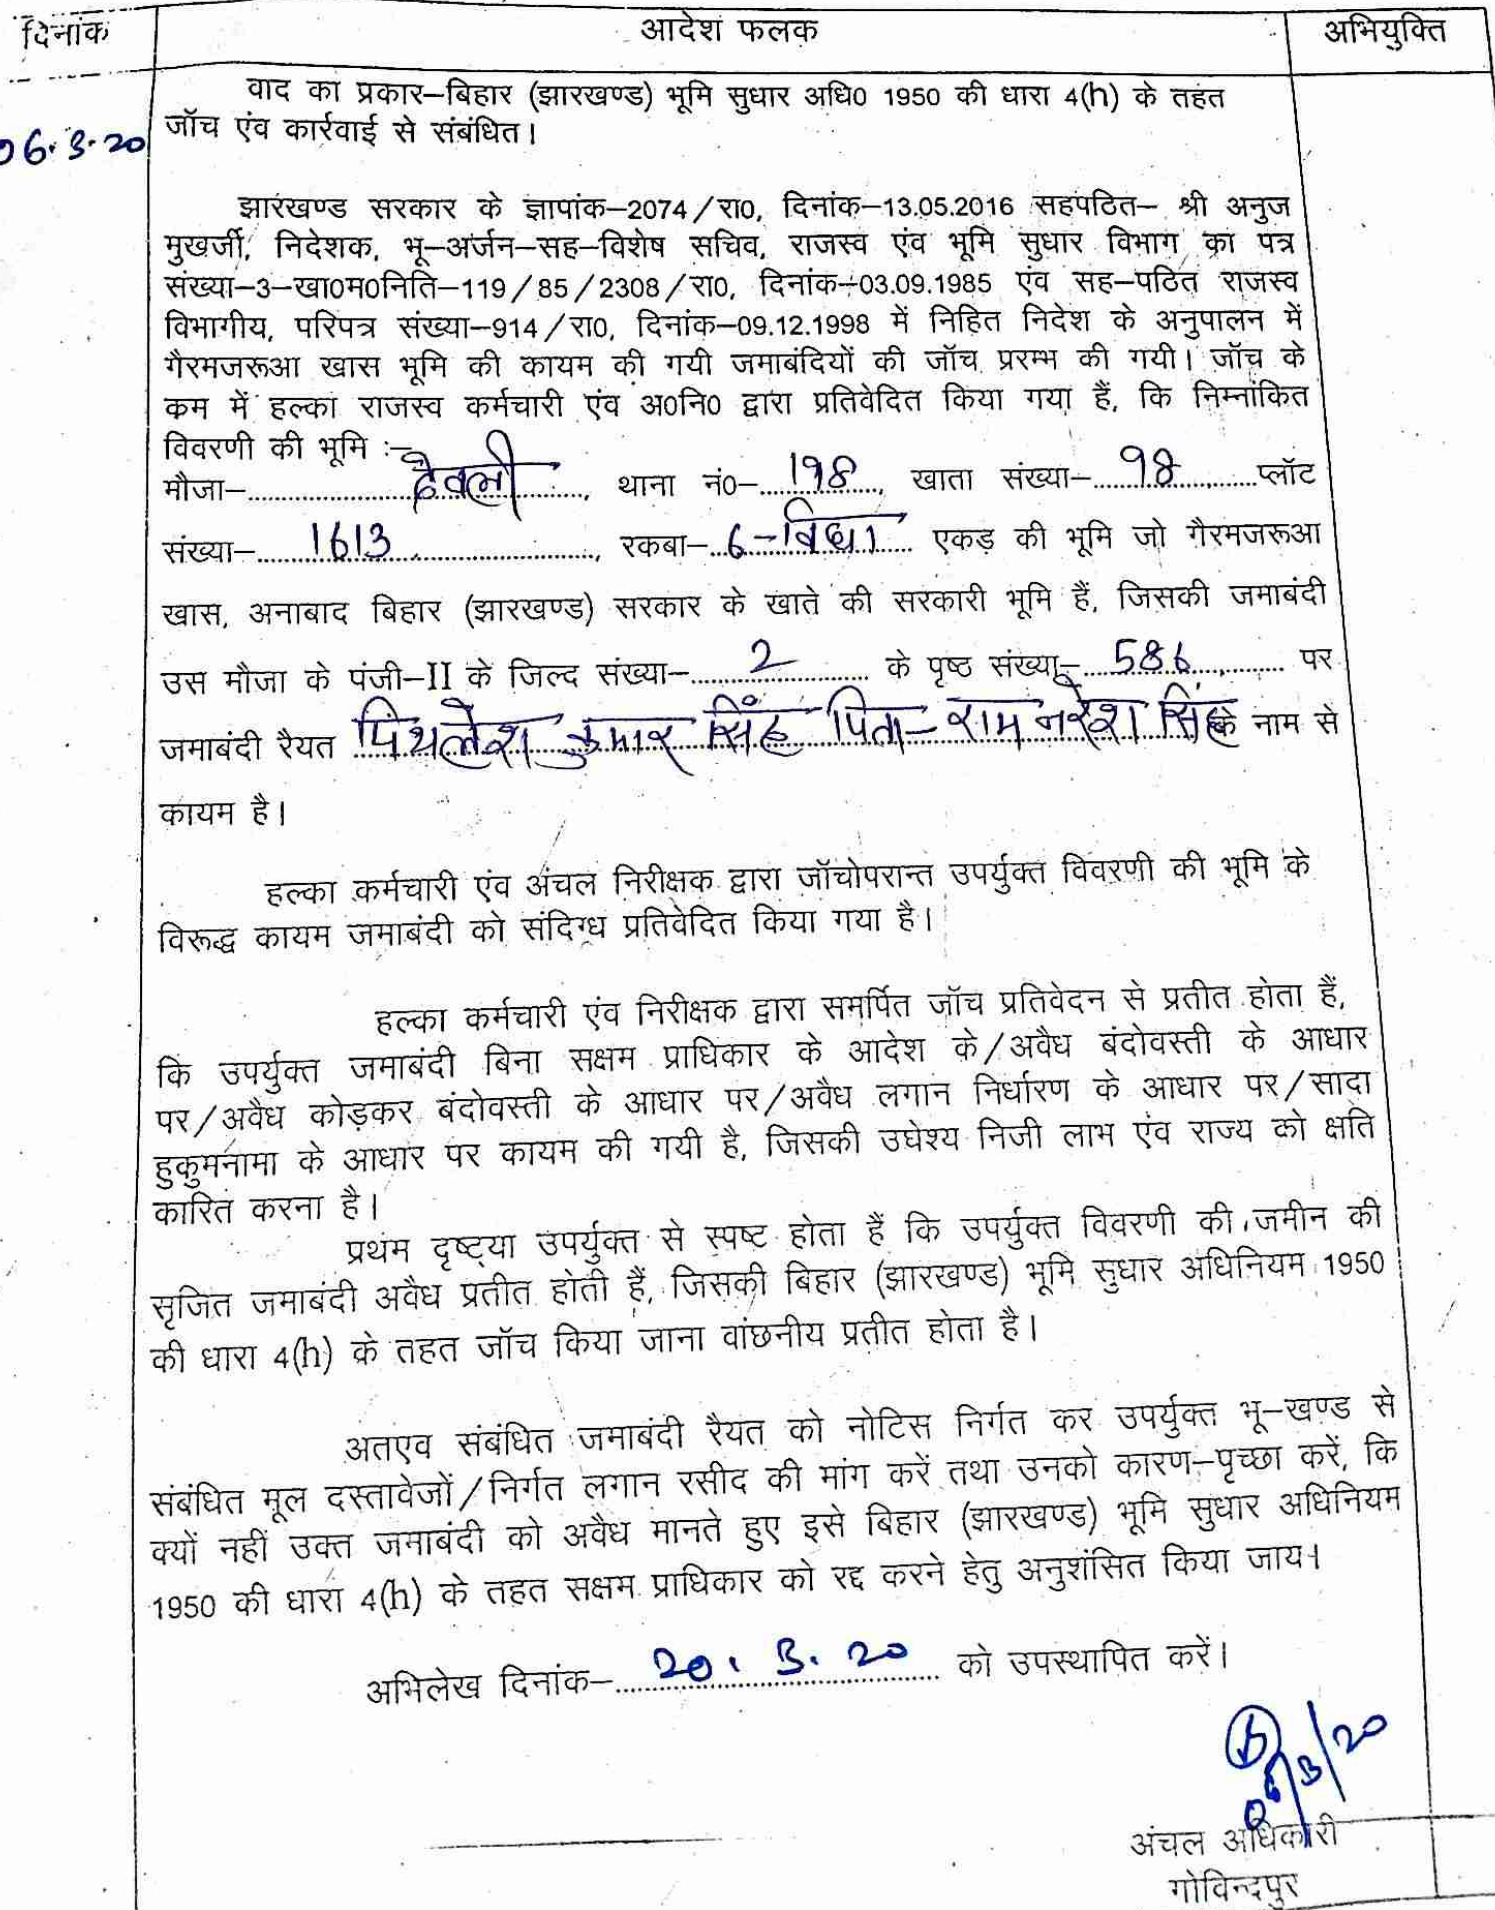 दिनांक आदेश फलक अभियुक्ति
वाद का प्रकार–बिहार (झारखण्ड) भूमि सुधार अधि0 1950 की धारा 4(h) के तहत
06.3.20 जॉच एंव कार्रवाई से संबंधित।
झारखण्ड सरकार के ज्ञापांक–2074/रा0, दिनांक–13.05.2016 सहपठित– श्री अनुज
मुखर्जी, निदेशक, भू–अर्जन–सह–विशेष सचिव, राजस्व एंव भूमि सुधार विभाग का पत्र
संख्या–3–खा0म0निति–119/85/2308/रा0, दिनांक–03.09.1985 एंव सह–पठित राजस्व
विभागीय, परिपत्र संख्या–914/रा0, दिनांक–09.12.1998 में निहित निदेश के अनुपालन में
गैरमजरूआ खास भूमि की कायम की गयी जमाबंदियों की जॉच प्ररम्भ की गयी। जॉच के
कम में हल्का राजस्व कर्मचारी एंव अ0नि0 द्वारा प्रतिवेदित किया गया हैं, कि निम्नांकित
विवरणी की भूमि :–
मौजा– देवली, थाना नं0– 198, खाता संख्या– 98 प्लॉट
संख्या– 1613, रकबा– 6–विघा एकड़ की भूमि जो गैरमजरूआ
खास, अनाबाद बिहार (झारखण्ड) सरकार के खाते की सरकारी भूमि हैं, जिसकी जमाबंदी
उस मौजा के पंजी–II के जिल्द संख्या– 2 के पृष्ठ संख्या– 586 पर
जमाबंदी रैयत मिथलेश कुमार सिंह पिता– राम नरेश सिंह के नाम से
कायम है।
हल्का कर्मचारी एंव अंचल निरीक्षक द्वारा जॉचोपरान्त उपर्युक्त विवरणी की भूमि के
विरूद्ध कायम जमाबंदी को संदिग्ध प्रतिवेदित किया गया है।
हल्का कर्मचारी एंव निरीक्षक द्वारा समर्पित जॉच प्रतिवेदन से प्रतीत होता हैं,
कि उपर्युक्त जमाबंदी बिना सक्षम प्राधिकार के आदेश के/अवैध बंदोवस्ती के आधार
पर/अवैध कोड़कर बंदोवस्ती के आधार पर/अवैध लगान निर्धारण के आधार पर/सादा
हुकुमनामा के आधार पर कायम की गयी है, जिसकी उघेश्य निजी लाभ एंव राज्य को क्षति
कारित करना है।
प्रथम दृष्ट्या उपर्युक्त से स्पष्ट होता हैं कि उपर्युक्त विवरणी की जमीन की
सृजित जमाबंदी अवैध प्रतीत होती हैं, जिसकी बिहार (झारखण्ड) भूमि सुधार अधिनियम 1950
की धारा 4(h) के तहत जॉच किया जाना वांछनीय प्रतीत होता है।
अतएव संबंधित जमाबंदी रैयत को नोटिस निर्गत कर उपर्युक्त भू–खण्ड से
संबंधित मूल दस्तावेजों/निर्गत लगान रसीद की मांग करें तथा उनको कारण–पृच्छा करें, कि
क्यों नहीं उक्त जमाबंदी को अवैध मानते हुए इसे बिहार (झारखण्ड) भूमि सुधार अधिनियम
1950 की धारा 4(h) के तहत सक्षम प्राधिकार को रद्द करने हेतु अनुशंसित किया जाय।
अभिलेख दिनांक– 20.3.20 को उपस्थापित करें।
06/3/20
अंचल अधिकारी
गोविन्दपुर